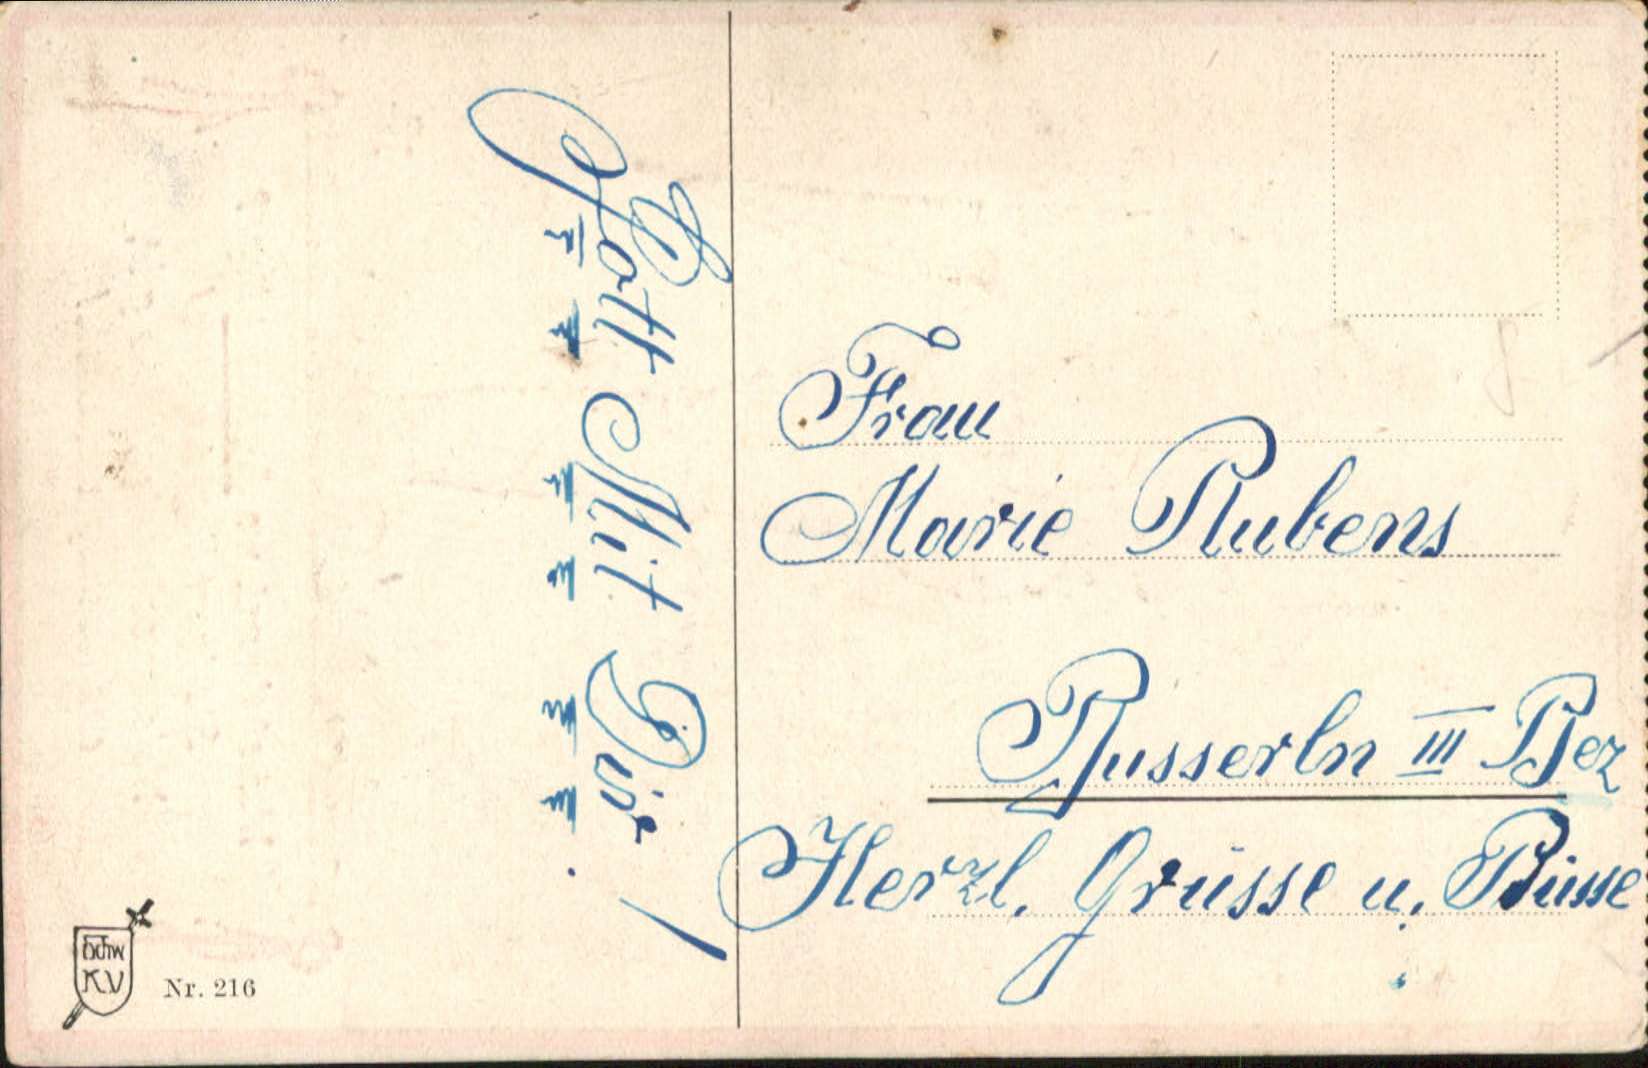 Gott Mit Dir!
Frau
Marie Rubens
Russerln III Bez
Herzl. Grüsse u. Büsse
Schw
K.V
Nr. 216